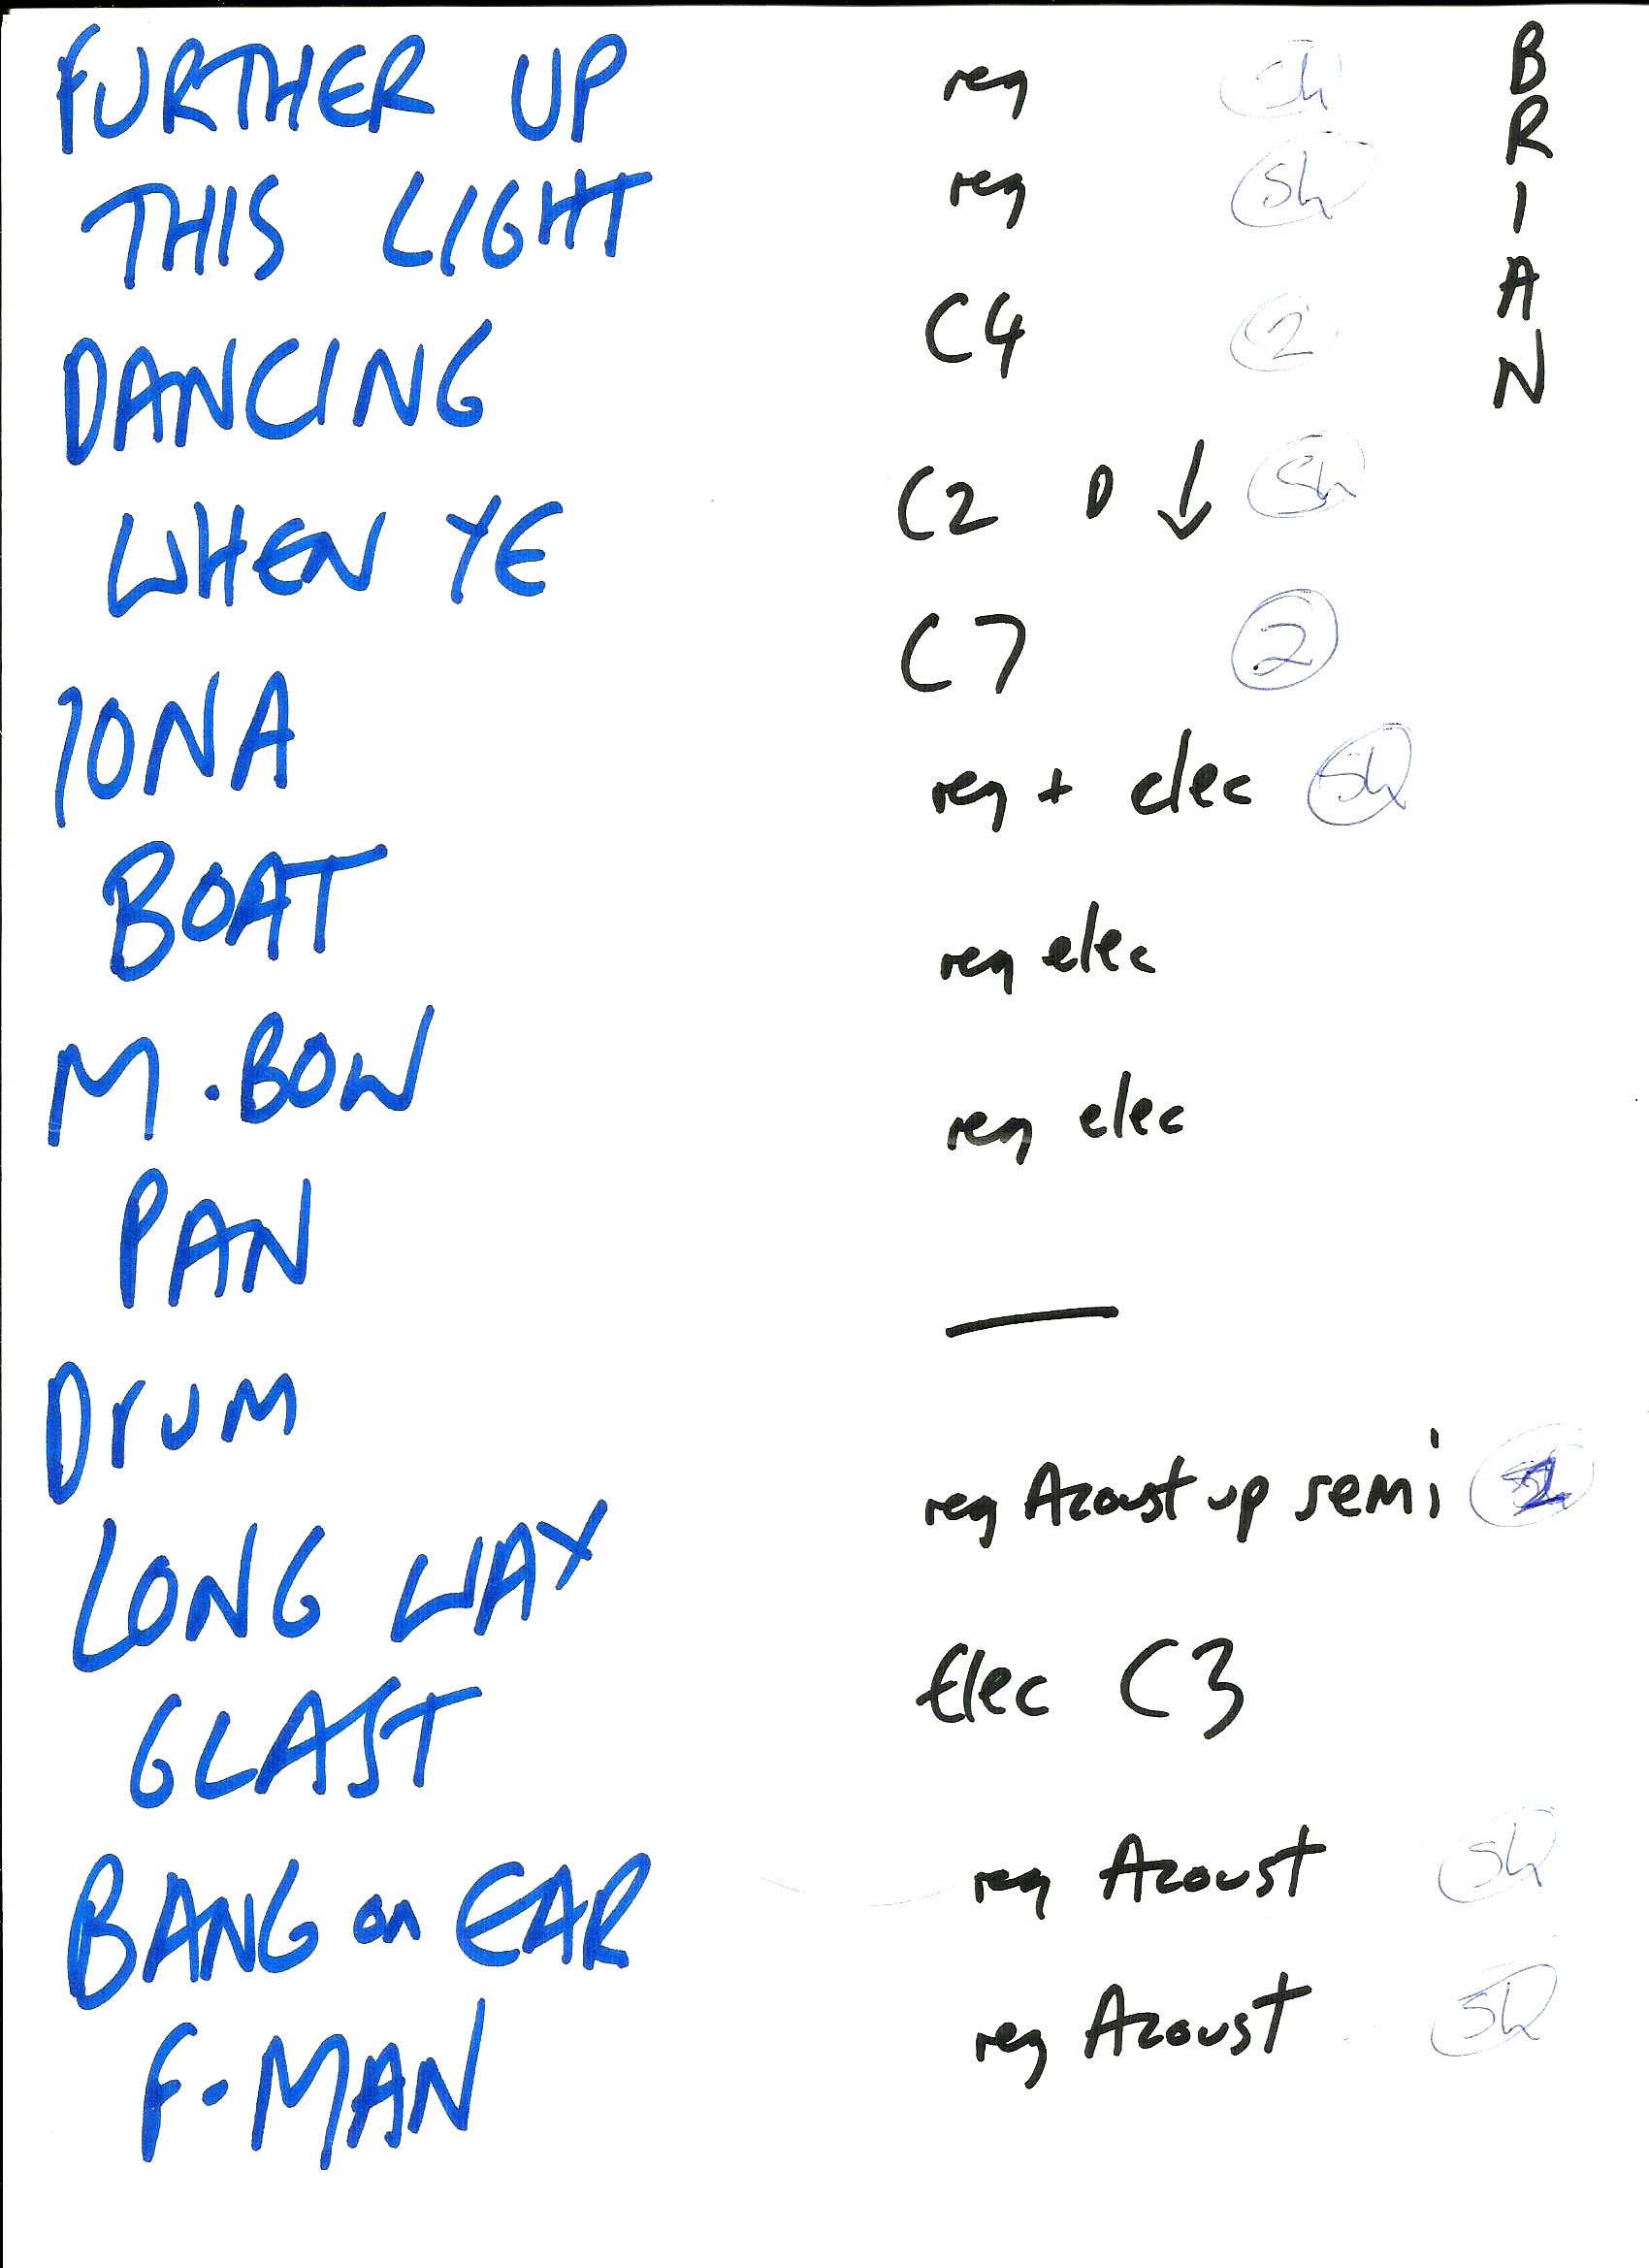 FURTHER UP reg Sh
THIS LIGHT reg Sh
DANCING C4 2
WHEN YE C2 D ↓ Sh
IONA C7 2
BOAT reg + elec Sh
M.BOW reg elec
PAN reg elec
DrUM —
LONG WAY reg Acoust up semi
GLAST Elec C3
BANG on EAR reg Acoust Sh
F-MAN reg Acoust Sh
BRIAN